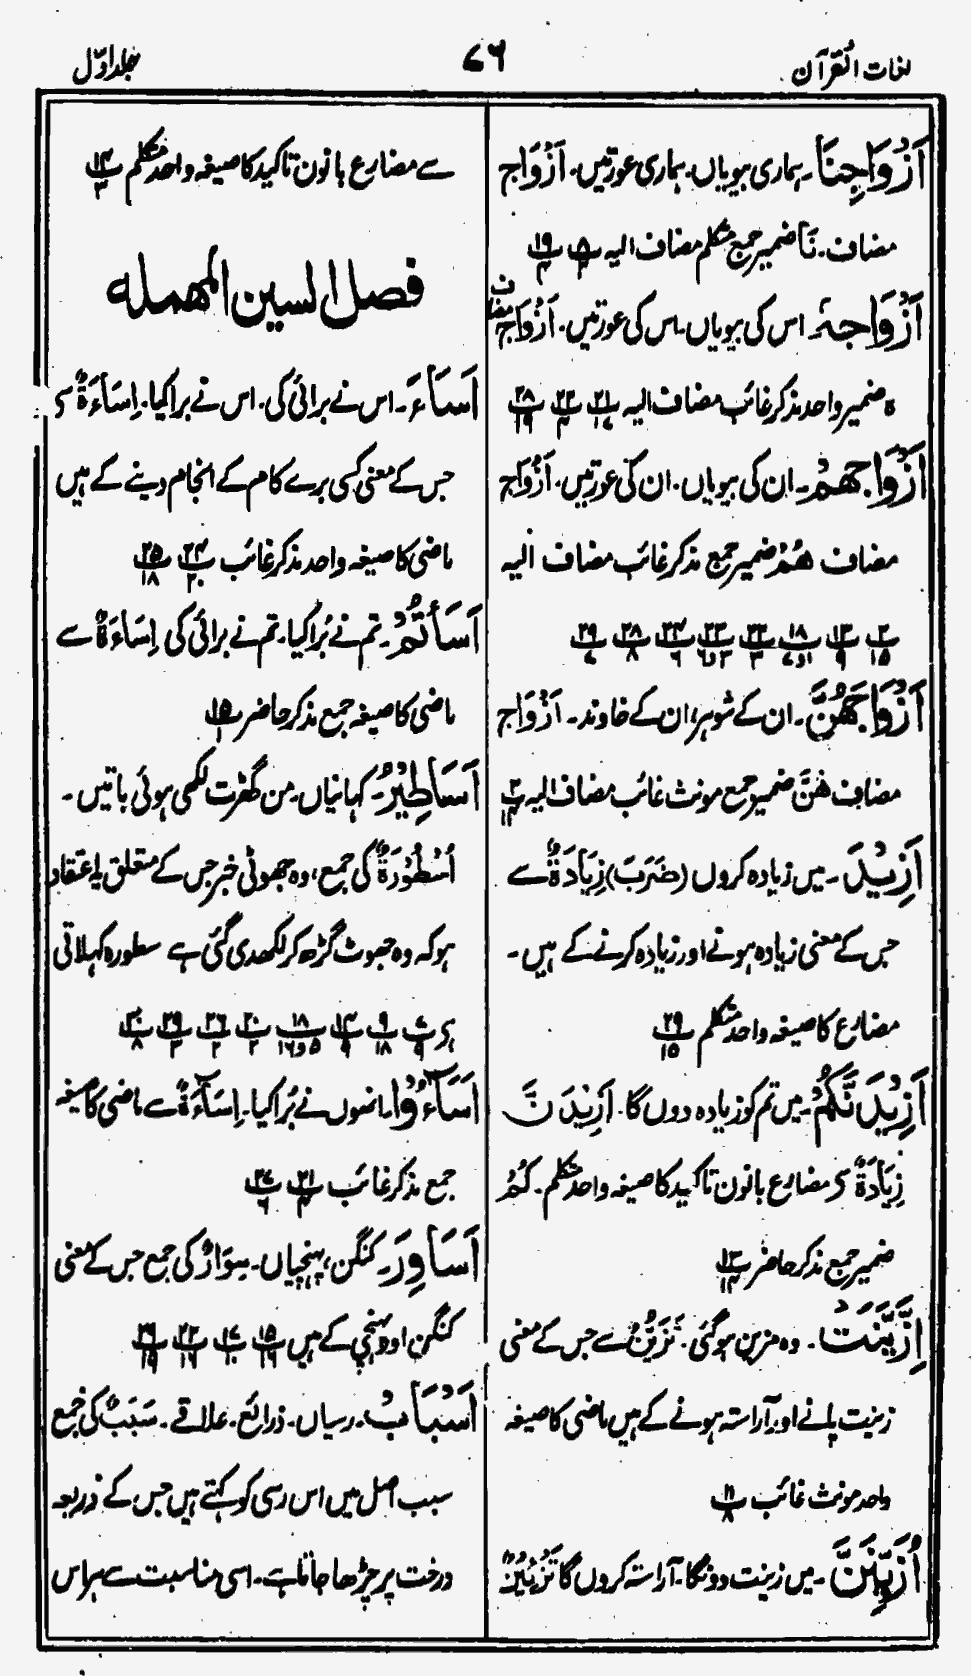 لغات القرآن
۷۶
جلد اوّل
اَزْوَاجِنَا۔ ہماری بیویاں۔ ہماری عورتیں۔ اَزْوَاج
مضاف۔ نَا ضمیر جمع متکلم مضاف الیہ
اَزْوَاجہٗ اس کی بیویاں۔ اس کی عورتیں۔ اَزْوَاج مضاف
ہ ضمیر واحد مذکر غائب مضاف الیہ ۲۱پ۱۷ ۲۲پ۴ ۲۸پ۱۹
اَزْوَاجِهِمْ۔ ان کی بیویاں۔ ان کی عورتیں۔ اَزْوَاج
مضاف هُمْ ضمیر جمع مذکر غائب مضاف الیہ
۲پ۱۵ ۱۳پ۹ ۱۸پ۱و۷ ۲۲پ۳ ۲۳پ۲و۶ ۲۴پ۶ ۲۸پ۸ ۲۹پ۷
اَزْوَاجَهُنَّ۔ ان کے شوہر، ان کے خاوند۔ اَزْوَاج
مضاف هُنَّ ضمیر جمع مونث غائب مضاف الیہ ۲پ۱۴
اَزِیْدَ۔ میں زیادہ کروں (ضَرَبَ) زِیَادَۃٌ سے
جس کے معنی زیادہ ہونے اور زیادہ کرنے کے ہیں۔
مضارع کا صیغہ واحد متکلم ۲۹پ۱۵
اَزِیْدَنَّکُمْ۔ میں تم کو زیادہ دوں گا۔ اَزِیْدَنَّ
زِیَادَۃٌ سے مضارع بانون تاکید کا صیغہ واحد متکلم۔ کُمْ
ضمیر جمع مذکر حاضر ۱۳پ۱۴
اِزَّیَّنَتْ۔ وہ مزین ہوگئی۔ تَزَیُّنٌ سے جس کے معنی
زینت پانے اور آراستہ ہونے کے ہیں ماضی کا صیغہ
واحد مونث غائب ۱۱پ۸
اُزَیِّنَنَّ۔ میں زینت دونگا۔ آراستہ کروں گا تَزْیِیْنٌ
سے مضارع بانون تاکید کا صیغہ واحد متکلم ۱۴پ۳
فصل السین المهمله
اَسَاءَ۔ اس نے برائی کی۔ اس نے برا کیا۔ اِسَاءَۃٌ سے
جس کے معنی کسی برے کام کے انجام دینے کے ہیں
ماضی کا صیغہ واحد مذکر غائب ۲۴پ۲۰ ۲۵پ۱۸
اَسَأْتُمْ۔ تم نے بُرا کیا۔ تم نے برائی کی اِسَاءَۃٌ سے
ماضی کا صیغہ جمع مذکر حاضر ۱۵پ۱
اَسَاطِیْرُ۔ کہانیاں۔ من گھڑت لکھی ہوئی باتیں۔
اُسْطُوْرَۃٌ کی جمع، وہ جھوٹی خبر جس کے متعلق یہ اعتقاد
ہو کہ وہ جھوٹ گڑھ کر لکھدی گئی ہے سطورہ کہلاتی
ہے ۷پ۹ ۹پ۱۸ ۱۴پ۹ ۱۸پ۵و۱۶ ۲۰پ۲ ۲۶پ۲ ۲۹پ۳ ۳۰پ۸
اَسَآءُوْا۔ انھوں نے بُرا کیا۔ اِسَآءَۃٌ سے ماضی کا صیغہ
جمع مذکر غائب ۲۱پ۴ ۲۷پ۶
اَسَاوِرَ۔ کنگن، پہنچیاں۔ سِوَارٌ کی جمع جس کے معنی
کنگن اور پہنچی کے ہیں ۱۵پ۱۶ ۱۷پ۱۰ ۲۲پ۱۶ ۲۹پ۱۹
اَسْبَابُ۔ رسیاں۔ ذرائع۔ علاقے۔ سَبَبٌ کی جمع
سبب اصل میں اس رسی کو کہتے ہیں جس کے ذریعہ
درخت پر چڑھا جاتا ہے۔ اسی مناسبت سے ہر اس